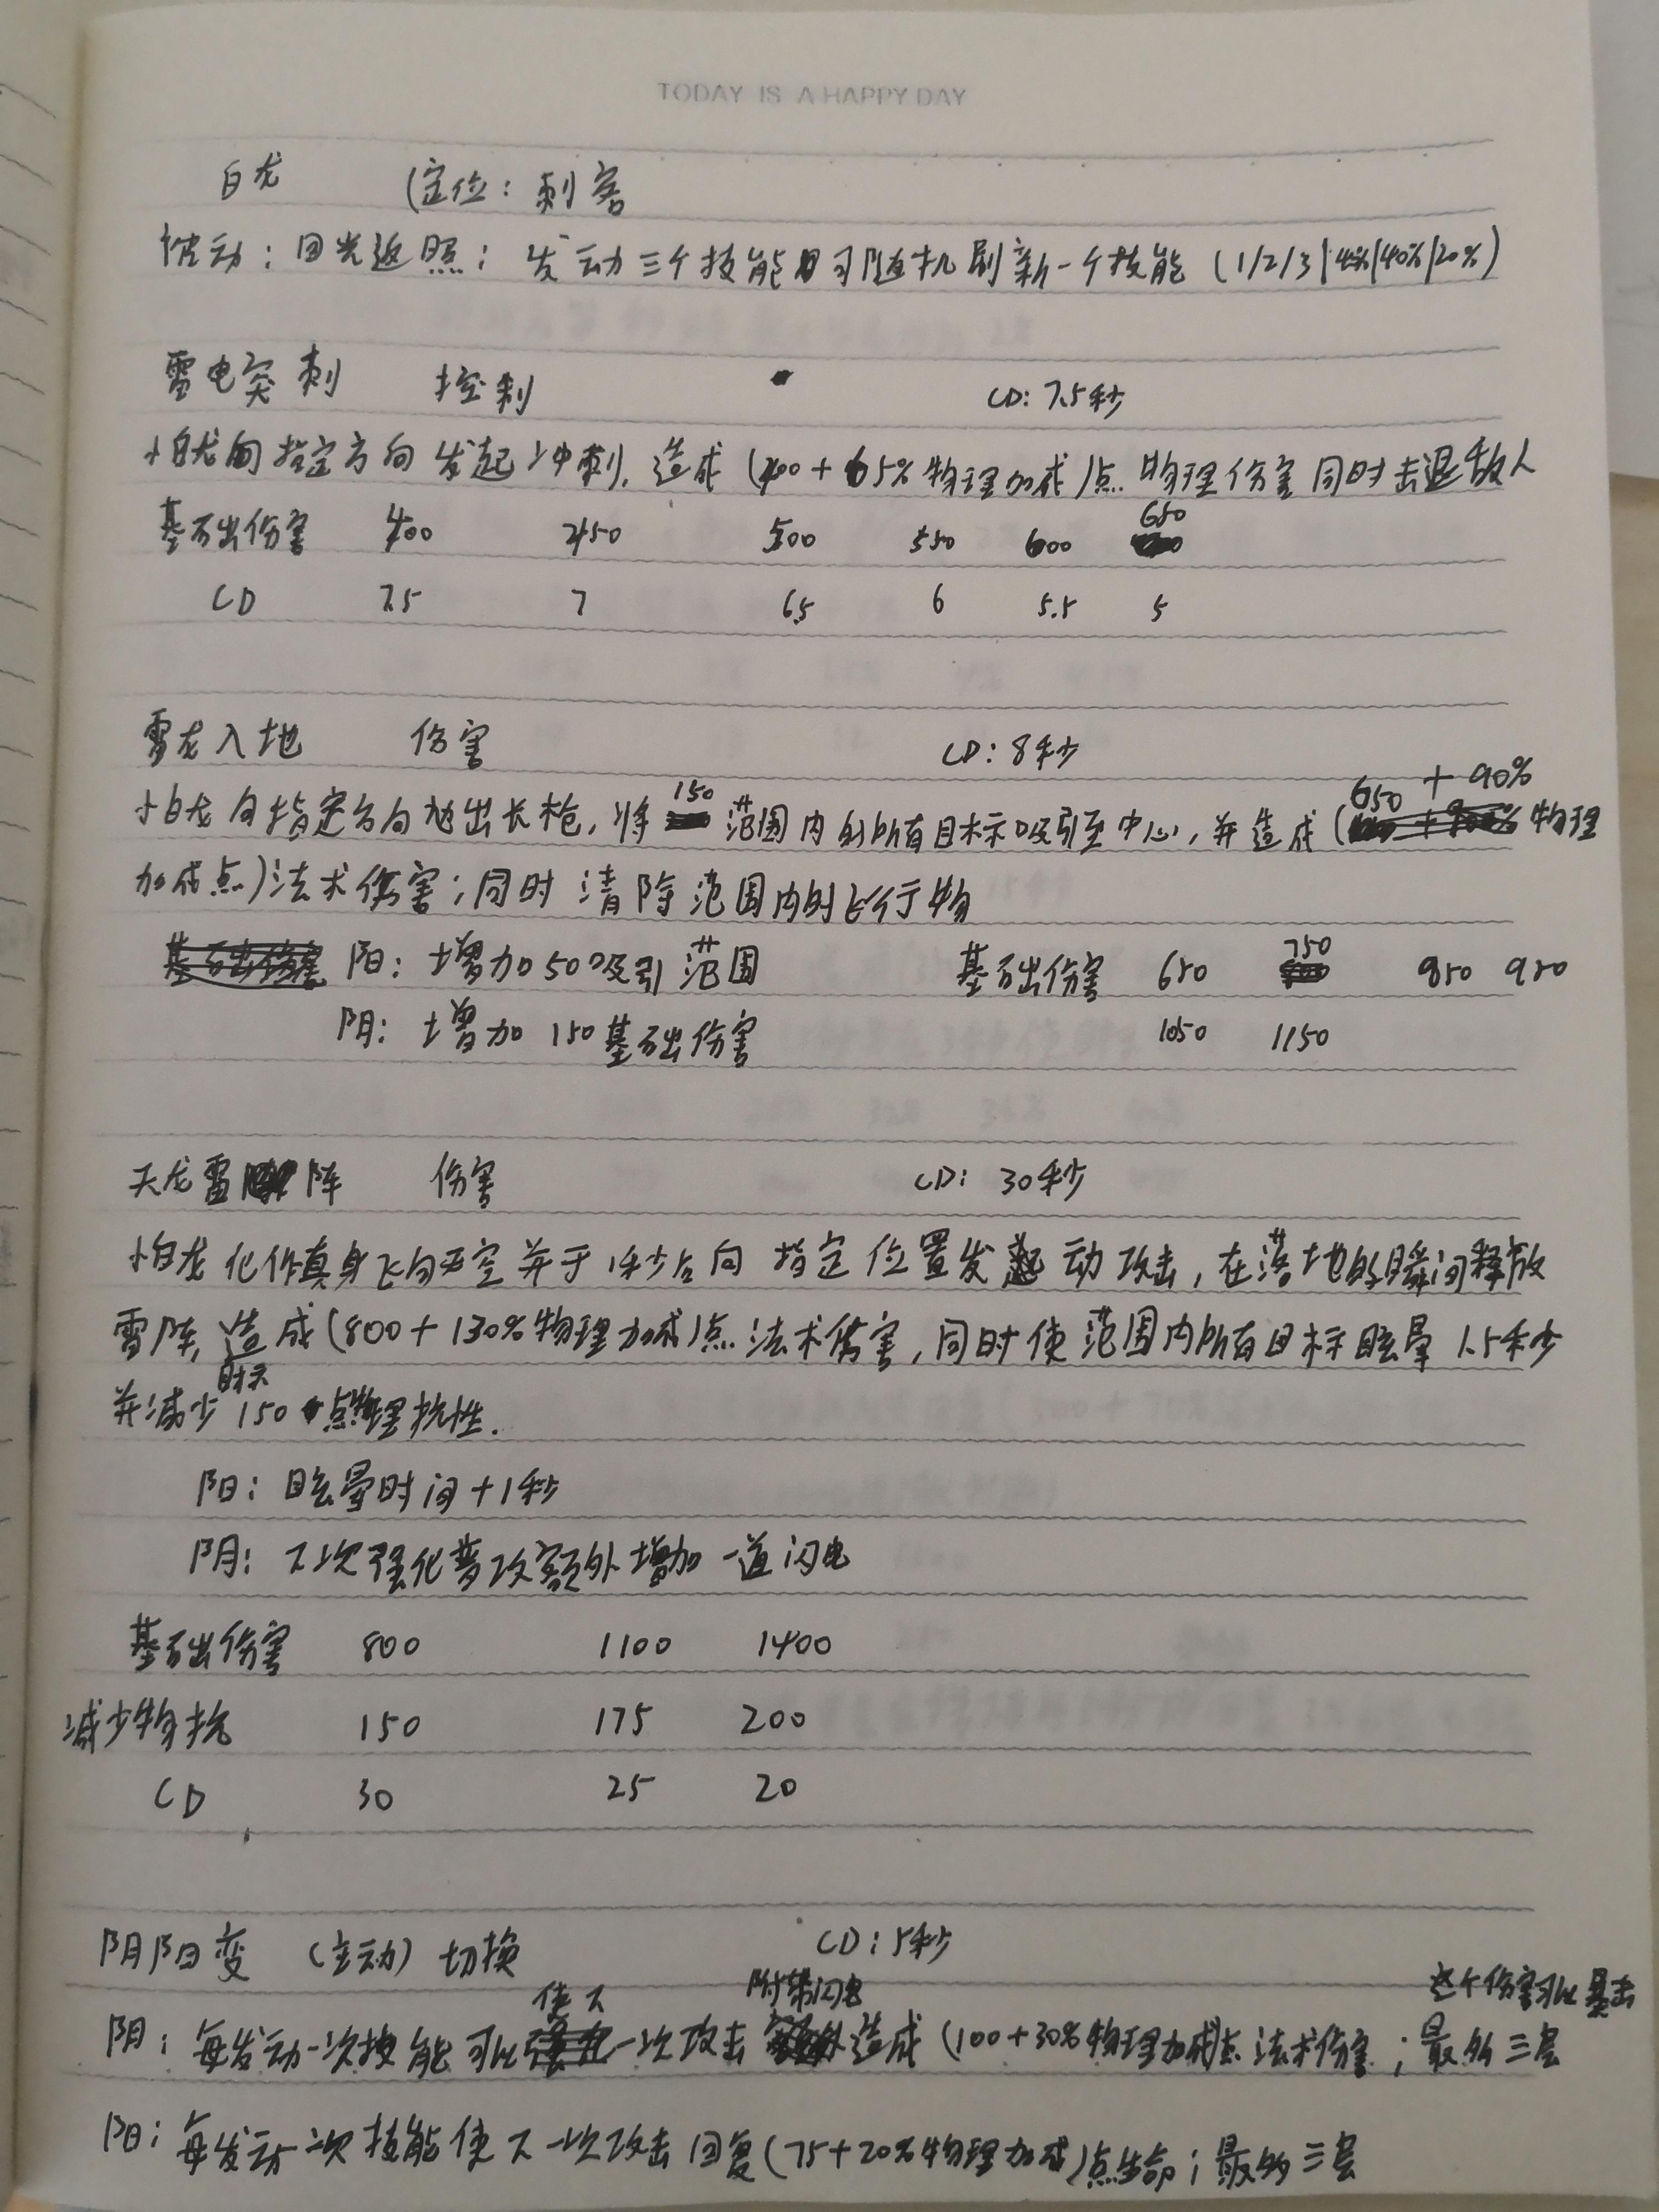 TODAY IS A HAPPY DAY
白龙 (定位：刺客
被动：回光返照：发动三个技能可随机刷新一个技能 (1/2/3|40%|40%|20%)
雷电突刺 控制 CD: 7.5秒
小白龙向指定方向发起冲刺, 造成 (400 + 65% 物理加成)点物理伤害同时击退敌人
基础伤害 400 450 500 550 600 650
CD 7.5 7 6.5 6 5.5 5
雷龙入地 伤害 CD: 8秒
小白龙向指定方向抛出长枪, 将150范围内的所有目标吸引至中心, 并造成 (650 + 90% 物理
加成点)法术伤害；同时清除范围内的飞行物
阳：增加50吸引范围 基础伤害 650 750 850 950
阴：增加150基础伤害 1050 1150
天龙雷阵 伤害 CD: 30秒
小白龙化作真身飞向天空并于1秒后向指定位置发动攻击, 在落地的瞬间释放
雷阵, 造成(800 + 130%物理加成)点法术伤害, 同时使范围内所有目标眩晕1.5秒
并减少150点物理抗性.
阳：眩晕时间+1秒
阴：下次强化普攻额外增加一道闪电
基础伤害 800 1100 1400
减少物抗 150 175 200
CD 30 25 20
阴阳变 (主动) 切换 CD: 5秒
阴：每发动一次技能可以使下一次攻击附带闪电造成 (100+30%物理加成)点法术伤害；最多三层 这个伤害可以暴击
阳：每发动一次技能使下一次攻击回复(75+20%物理加成)点生命；最多三层